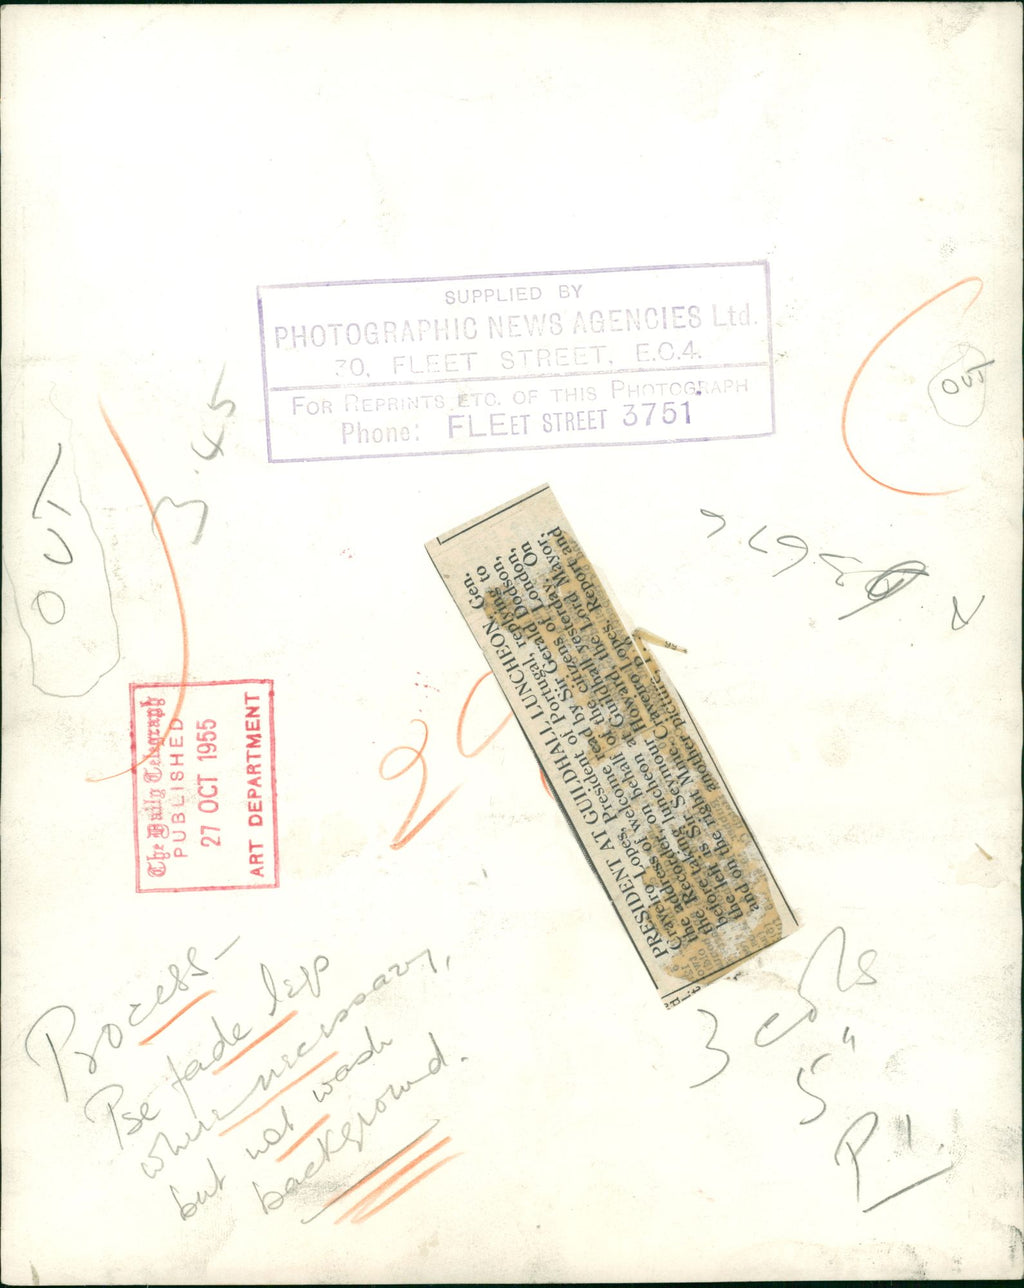 SUPPLIED BY
PHOTOGRAPHIC NEWS AGENCIES Ltd.
30, FLEET STREET, E.C.4.
FOR REPRINTS ETC. OF THIS PHOTOGRAPH
Phone: FLEET STREET 3751
OUT
OUT
3.45
PRESIDENT AT GUILDHALL LUNCHEON. Gen.
Craveiro Lopes, President of Portugal, replying to
the address of welcome read by Sir Gerald Dodson,
the Recorder, on behalf of the citizens of London,
before taking luncheon at Guildhall yesterday. On
the left is Sir Seymour Howard, the Lord Mayor,
and on the right Mme. Craveiro Lopes. Report and
The Daily Telegraph
PUBLISHED
27 OCT 1955
ART DEPARTMENT
2
Process—
Pse fade legs
where necessary,
but not wash
background.
3 cols
5"
P.1.